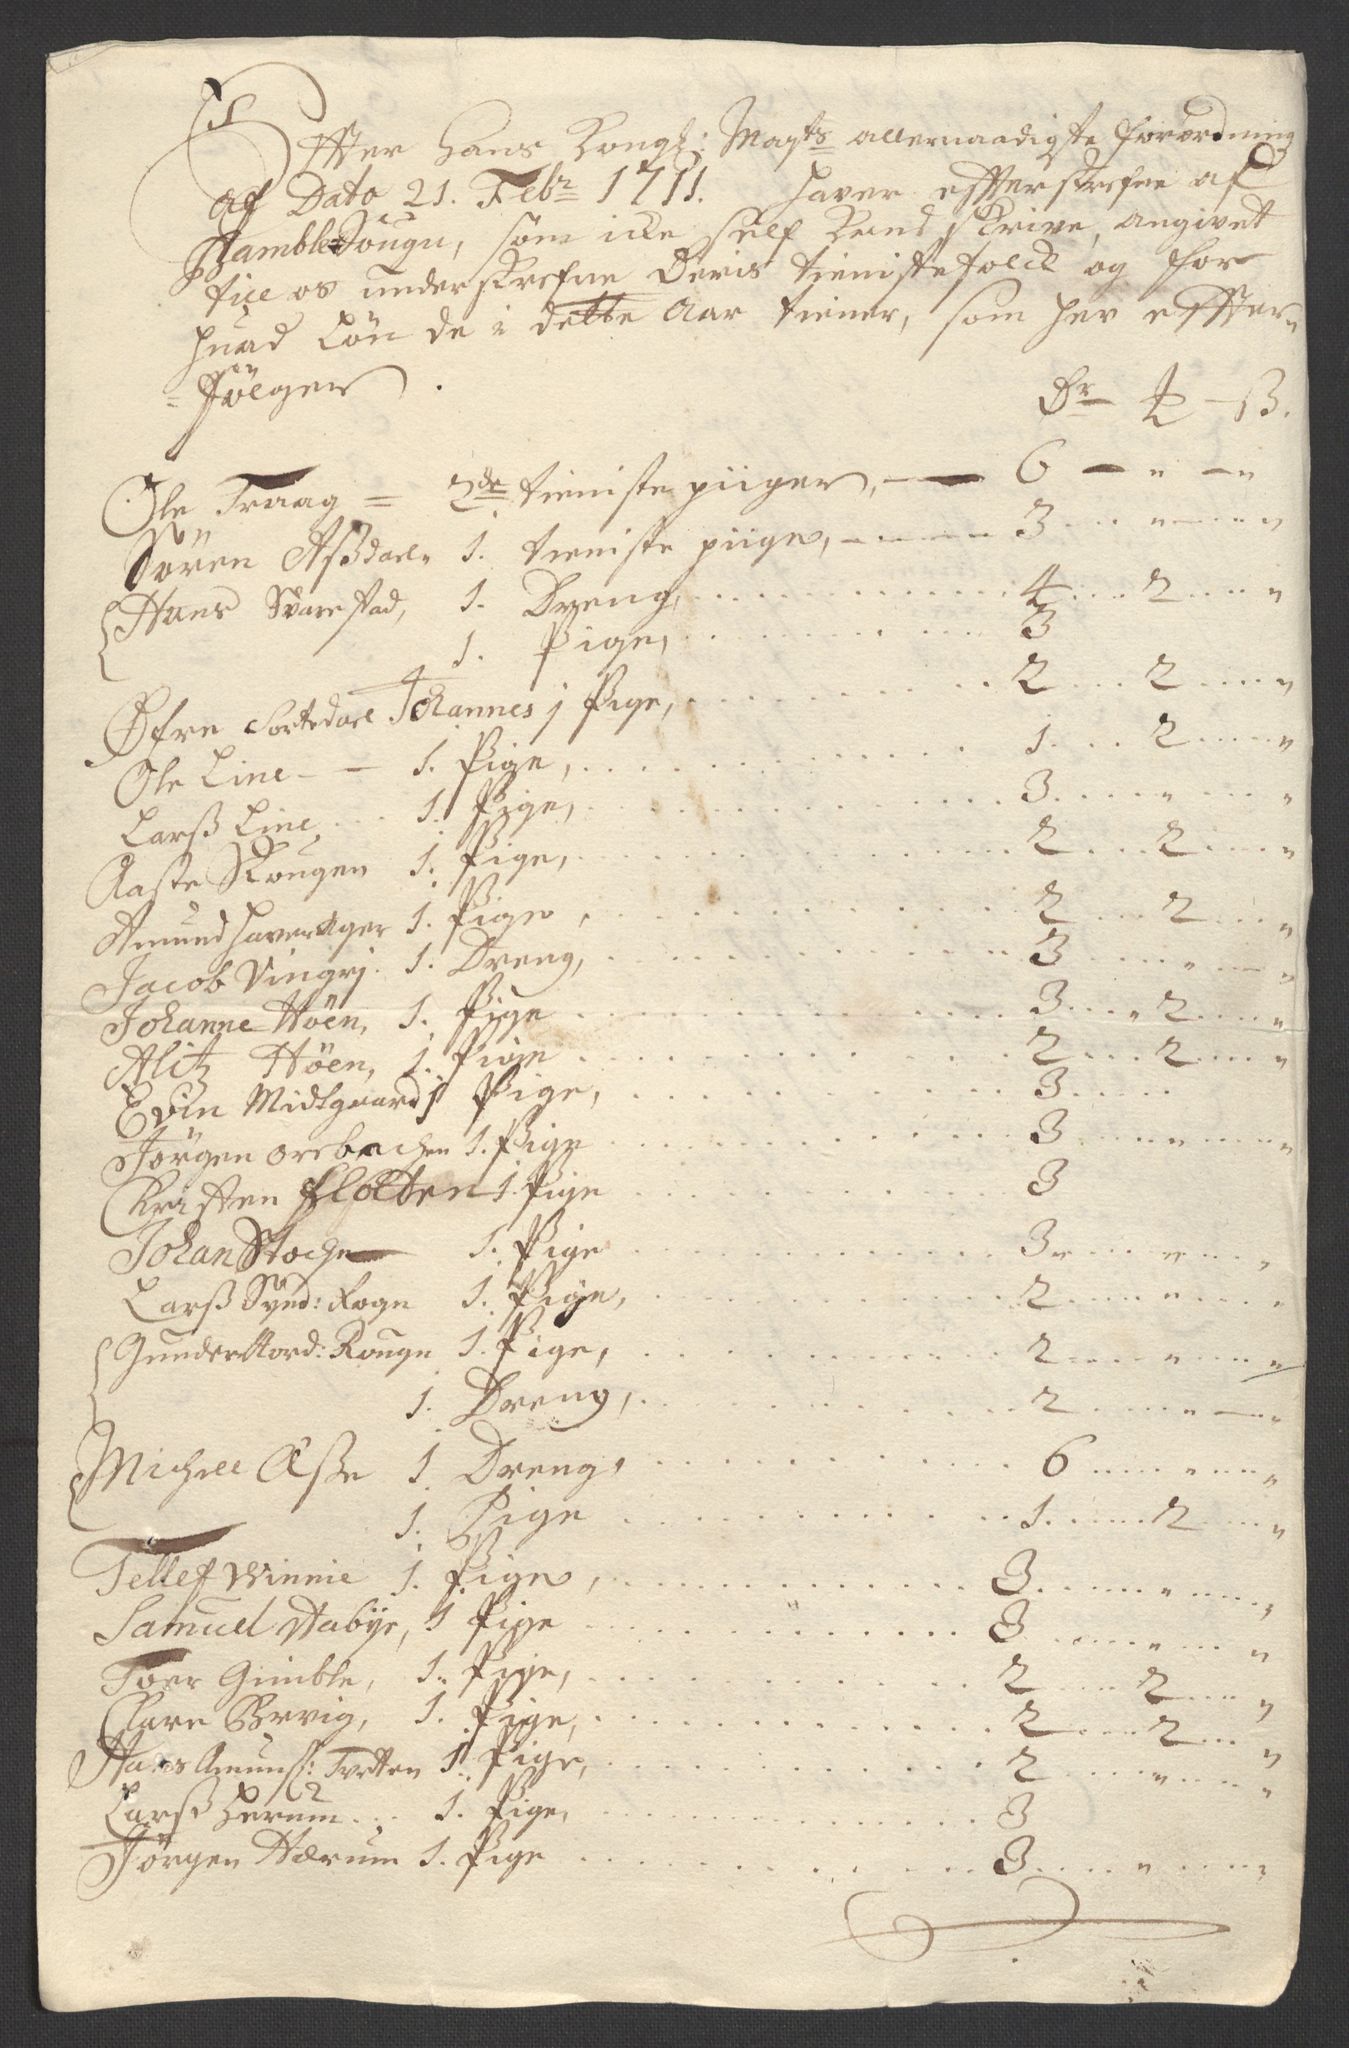 Efter hans Kongl: Mayts allernaadigste forordning
af Dato 21. Febr 1711. haver efterskrefne af
Bamble Sougn, som icke self kand skrive, angivet
till os underskrefne deris tienistefolck og for
huad Løn de i dette Aar tiener, som her efter
= følger.
Dr ℔ ß.
Ole Traag = 2de tieniste piiger, — 6 — " — "
Søren Aßdall 1. tieniste piige, — 3 . . . " "
Hans Svarestad, 1. Dreng, . . . 4 . . . 2 . . . "
1. Pige, . . . 3
Øfre Sortedall Johannes j Pige, . . . 2 . . . 2 . . . "
Ole Line — — 1. Pige, . . . 1 . . . 2 . . . "
Larß Line . . . 1. Pige, . . . 3 . . . " . . . "
Aaste Skougen 1. Pige, . . . 2 . . . 2 . . . "
Amund Haverager 1. Pige, . . . 2 . . . 2 . . . "
Jacob Vingrj. 1. Dreng, . . . 3 . . . " . . . "
Johanne Höen, 1. Pige . . . 3 . . . 2 . . . "
Alitz Höen, 1. Pige . . . 2 . . . 2 . . . "
Evin Midtgaard 1 Pige, . . . 3 . . .
Jörgen Orebachen 1. Pige . . . 3 . . . " . . . "
Kristen Flotten 1. Pige . . . 3
Johan Stochne 1. Pige . . . 3 . . . " . . . "
Larß Synd: Rogn 1. Pige, . . . 2 . . . " . . . "
Gunder Nord: Rougn 1. Pige, . . . 2 . . . " . . . "
1. Dreng, . . . 2 . . . " — "
Michell Aße 1 Dreng, . . . 6 . . . " . . . "
1. Pige . . . 1 . . . 2 . . . "
Tellef Winnie 1. Pige, . . . 3 . . . " . . . "
Samuel Aabye, 1 Pige . . . 3 . . . " . . . "
Toer Gimble, 1. Pige, . . . 2 . . . 2 . . . "
Clare Örvig, 1. Pige, . . . 2 . . . 2 . . . "
Hans Amunß: Tvetten 1. Pige, . . . 2 . . . " . . . "
Larß Herum . . . 1. Pige, . . . 3
Jörgen Hærum 1. Pige . . . 3 . . . " . . . "